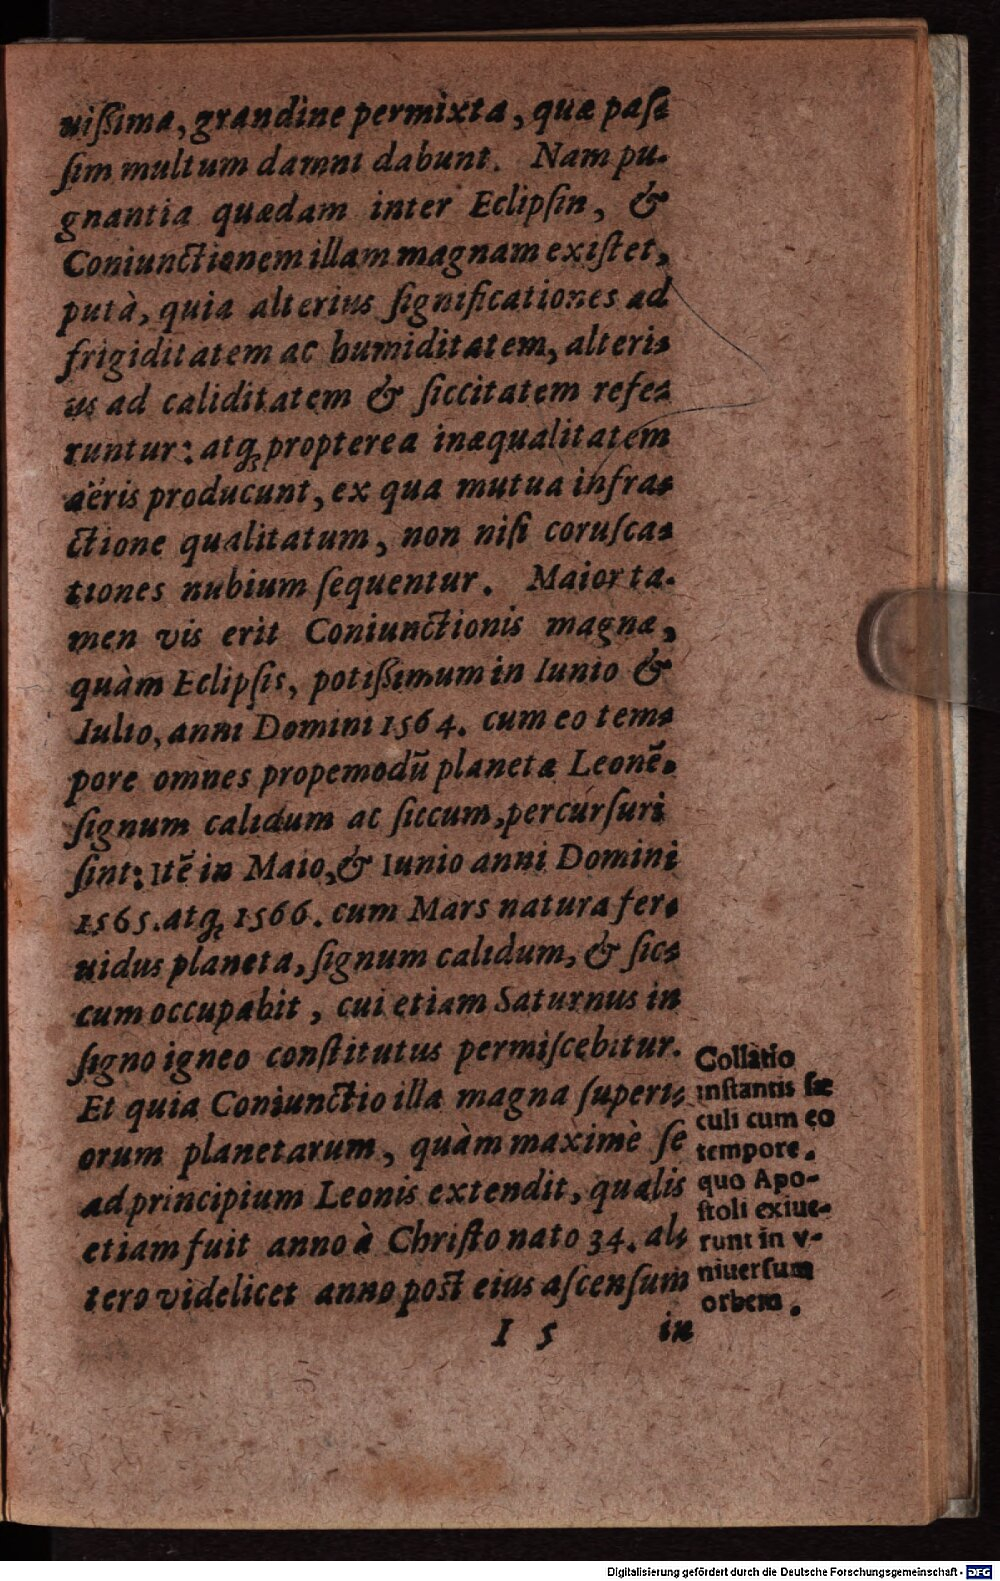 uiſſima, grandine permixta, quæ paſ-
ſim multum damni dabunt. Nam pu-
gnantia quædam inter Eclipſin, &
Coniunctionem illam magnam exiſtet,
putà, quia alterius ſignificationes ad
frigiditatem ac humiditatem, alteri-
us ad caliditatem & ſiccitatem refe-
runtur: atq; propterea inæqualitatem
aëris producunt, ex qua mutua infra-
ctione qualitatum, non niſi coruſca-
tiones nubium ſequentur. Maior ta-
men vis erit Coniunctionis magnæ,
quàm Eclipſis, potiſſimum in Iunio &
Iulio, anni Domini 1564. cum eo tem-
pore omnes propemodū planetæ Leonē,
ſignum calidum ac ſiccum, percurſuri
ſint: Itē in Maio, & Iunio anni Domini
1565. atq; 1566. cum Mars natura fer-
uidus planeta, ſignum calidum, & ſic-
cum occupabit, cui etiam Saturnus in
ſigno igneo conſtitutus permiſcebitur.
Et quia Coniunctio illa magna ſuperi-
orum planetarum, quàm maximè ſe
ad principium Leonis extendit, qualis
etiam fuit anno à Chriſto nato 34. al-
tero videlicet anno poſt eius aſcenſum
I 5 in
Collatio
inſtantis ſæ
culi cum eo
tempore,
quo Apo-
ſtoli exiue-
runt in v-
niuerſum
orbem.
Digitalisierung gefördert durch die Deutsche Forschungsgemeinschaft - DFG